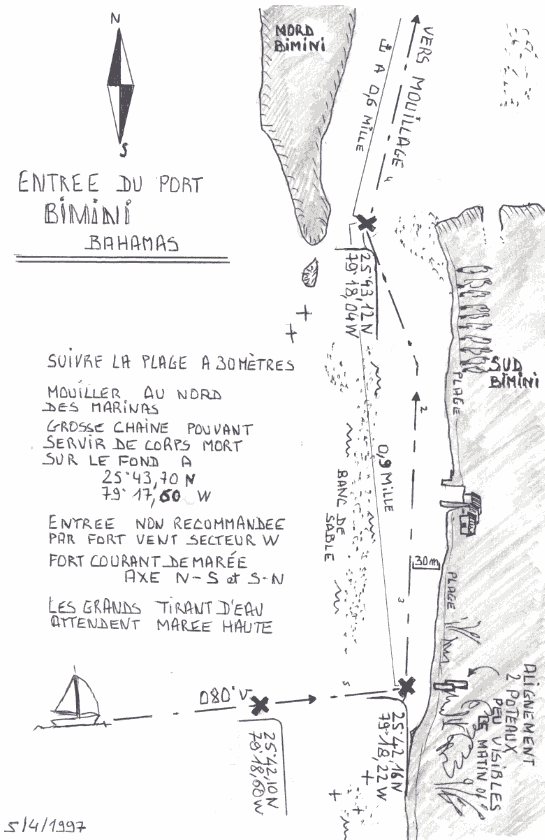 N
S
ENTREE DU PORT
BIMINI
BAHAMAS
NORD
BIMINI
VERS MOUILLAGE
A 0,6 MILLE
25°43,12N
79°18,04W
SUD
BIMINI
PLAGE
SUIVRE LA PLAGE A 30 MÈTRES
MOUILLER AU NORD
DES MARINAS
GROSSE CHAINE POUVANT
SERVIR DE CORPS MORT
SUR LE FOND A
25°43,70 N
79°17,60 W
ENTREE NON RECOMMANDEE
PAR FORT VENT SECTEUR W
FORT COURANT DE MARÉE
AXE N-S et S-N
LES GRANDS TIRANT D'EAU
ATTENDENT MAREE HAUTE
0,9 MILLE
BANC DE
SABLE
30m
PLAGE
ALIGNEMENT
2 POTEAUX
PEU VISIBLES
LE MATIN
080°V
25°42,16N
79°18,22W
25°42,10N
79°18,60W
5/4/1997